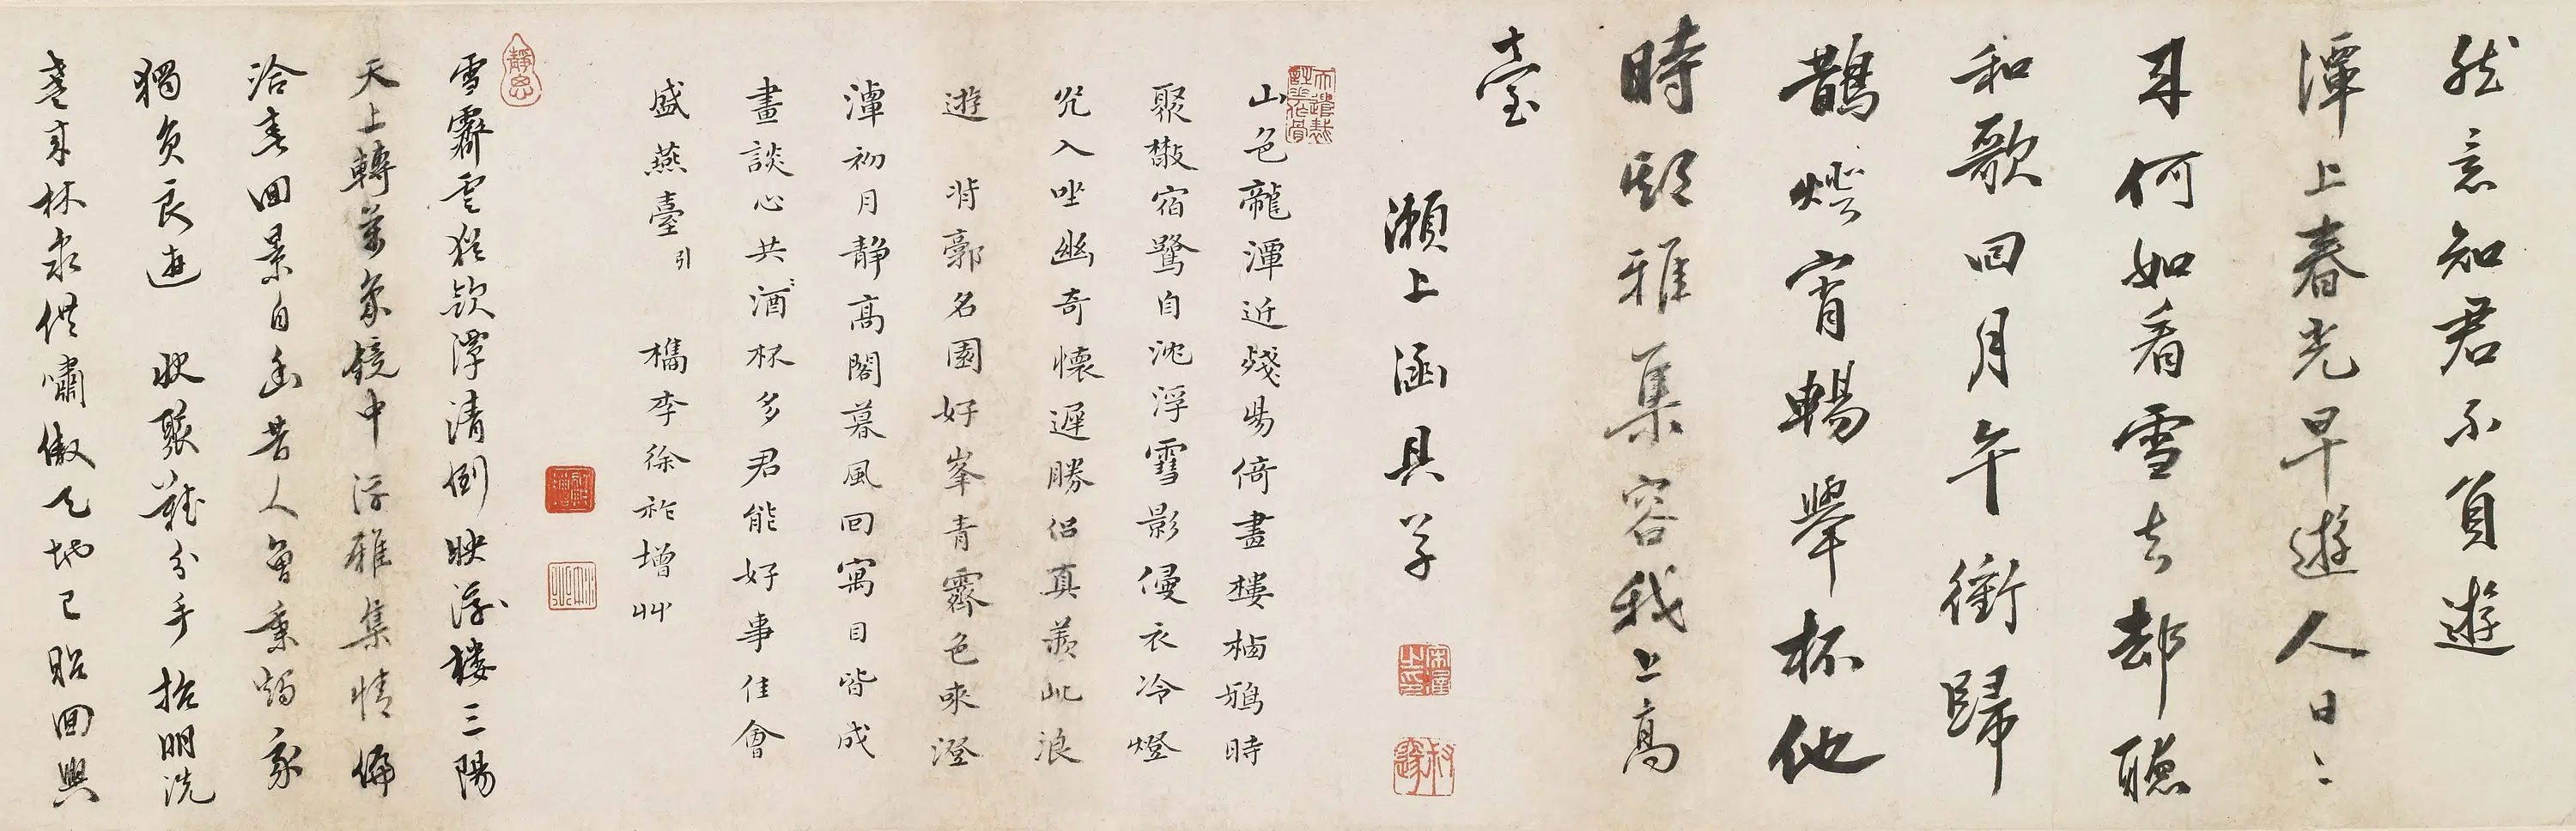 然意知君不負遊
潭上春光早遊人日〻
來何如看雪去却聽
和歌回月午銜歸
鵲燈宵暢舉杯他
時預雅集容我上高
臺
瀨上函具草
山色龍潭近殘昜倚畫樓樯鴉時
聚散宿鷺自沈浮雪影侵衣冷燈
光入坐幽奇懷遲勝侶真羨此浪
遊 背郭名園好峯青霽色來澄
潭初月静高閣暮風回寓目皆成
畫談心共酒杯多君能好事佳會
盛燕臺 引
檇李徐祚增艸
雪霽雲猶斂潭清倒映浮樓三陽
天上轉萬象鏡中浮雅集情偏
洽春回景自幽昔人曾秉燭我
獨負良遊 快聚難分手拈明洗
盞來林泉供嘯傲天地已昭回興